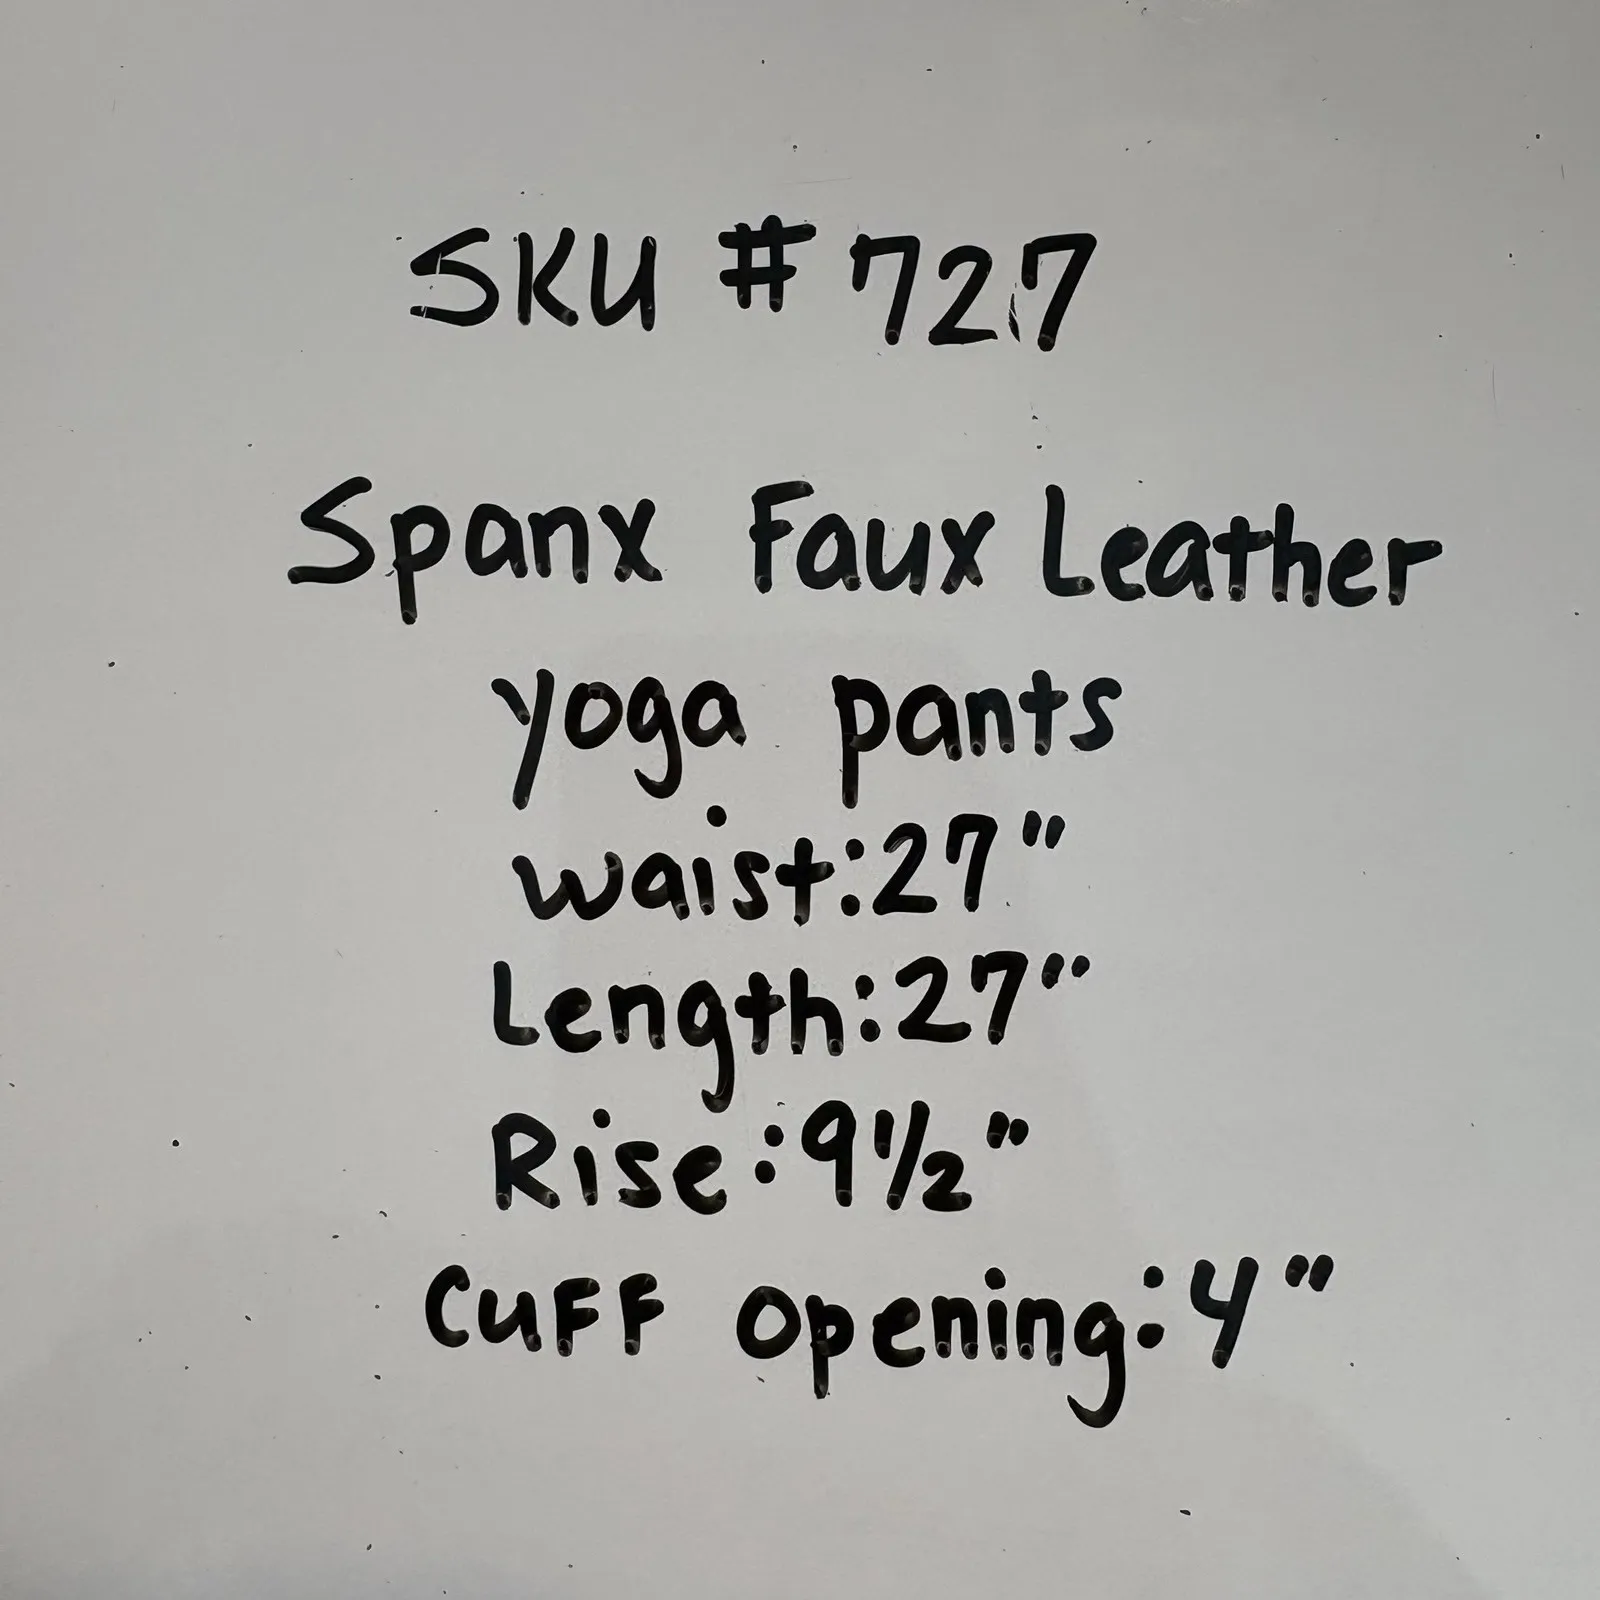 SKU # 727
Spanx Faux Leather
yoga pants
waist:27"
Length:27"
Rise:9½"
CuFF opening:4"